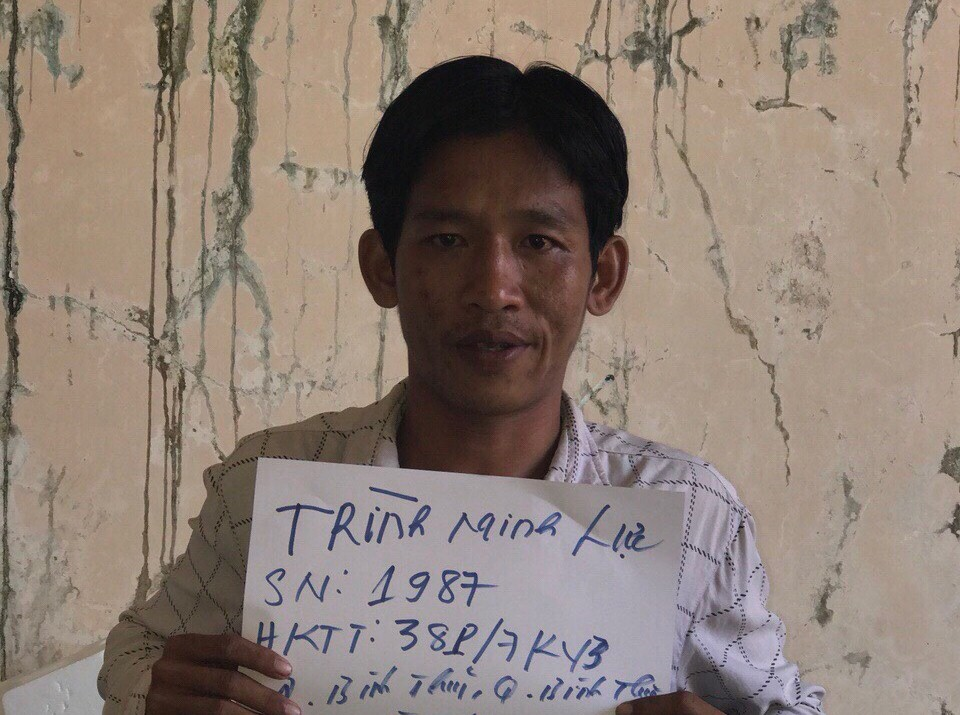 TRình Minh Lực
SN: 1987
HKTT: 38P/7 KV3
P. Bình Thuỷ, Q. Bình Thuỷ